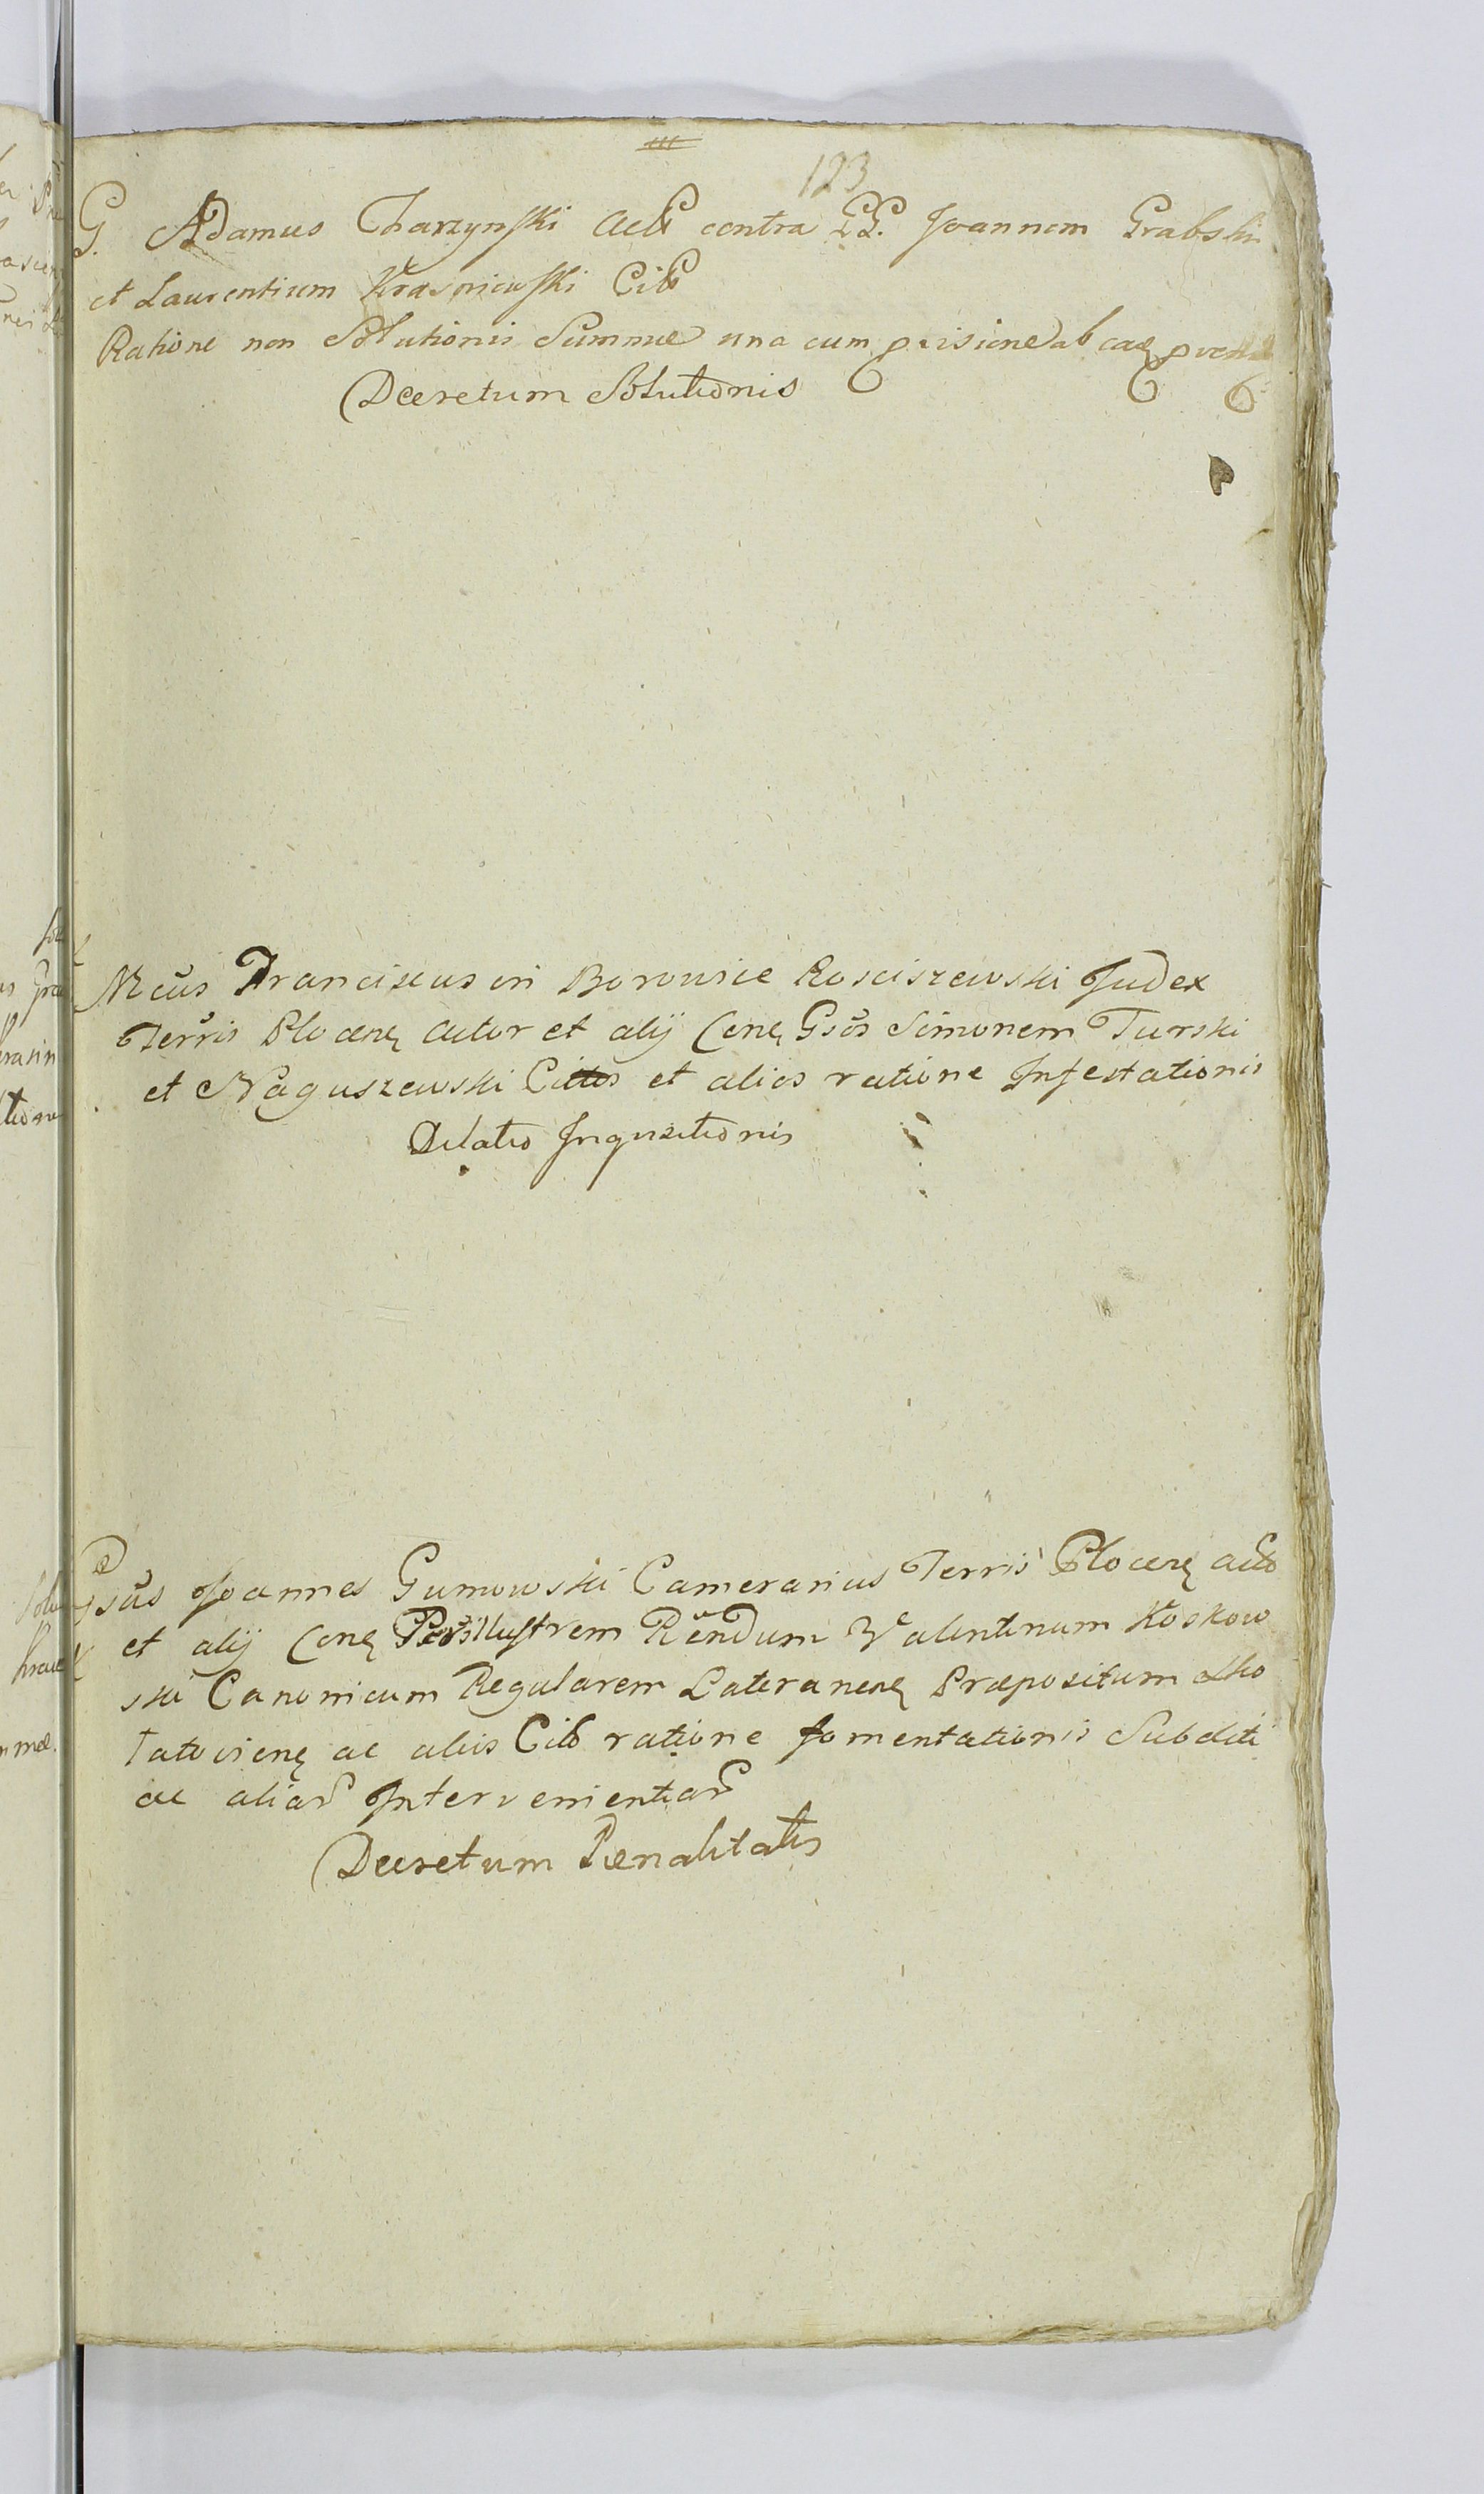 123
G. Adamus Tharzynski Actr contra GG. Joannem Grabski
et Laurentium Krasniewski Citt
Ratione non Solutionis Summæ una cum pvisione ab eaq
Decretum Solutionis
Mcus Franciscus in Borowice Rosciszewski Judex
Terris Plocenę Actor et alij Conę Gsos Simonem Turski
et Naguszewski Cittos et alios ratione Infestationis
Dilatio Inquisitionis
Gsus Joannes Gumowski Camerarius Terris Plocenę act
et alij Conę Perillustrem Rendum Valentinum Koskow
ski Canonicum Regularem Lateranenę Præpositum
ac aliis Citt ratione fomentationis Subditi
ac aliar Intervenientiar
Decretum Pænalitatis